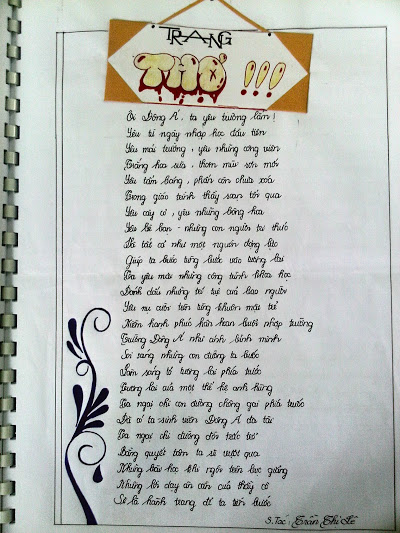 TRANG
THƠ !!!
Ôi Đông Á, ta yêu trường lắm!
Yêu từ ngày nhập học đầu tiên
Yêu mái trường, yêu những công viên
Trắng hoa sữa, thơm mùi sơn mới
Yêu tấm bảng, phấn còn chưa xóa
Trong giáo trình thầy soạn tối qua
Yêu cây cỏ, yêu những bông hoa
Yêu bè bạn - những con người tri thức
Và tất cả như một nguồn động lực
Giúp ta bước từng bước vào tương lai
Ta yêu mái những công trình khoa học
Đánh dấu những trí tuệ của bao người
Yêu nụ cười trên từng khuôn mặt trẻ
Niềm hạnh phúc hân hoan buổi nhập trường
Trường Đông Á như ánh bình minh
Soi sáng những con đường ta bước
Làm sáng tỏ tương lai phía trước
Tương lai của một thế hệ anh hùng
Ta ngại chi con đường chông gai phía trước
Đã có ta sinh viên Đông Á đa tài
Ta ngại chi đường dốc trơn trợt
Bằng quyết tâm ta sẽ vượt qua
Những bài học khi ngồi trên bục giảng
Những lời dạy ân cần của thầy cô
Sẽ là hành trang để ta tiến bước
S.Tác: Trần Thị Lê